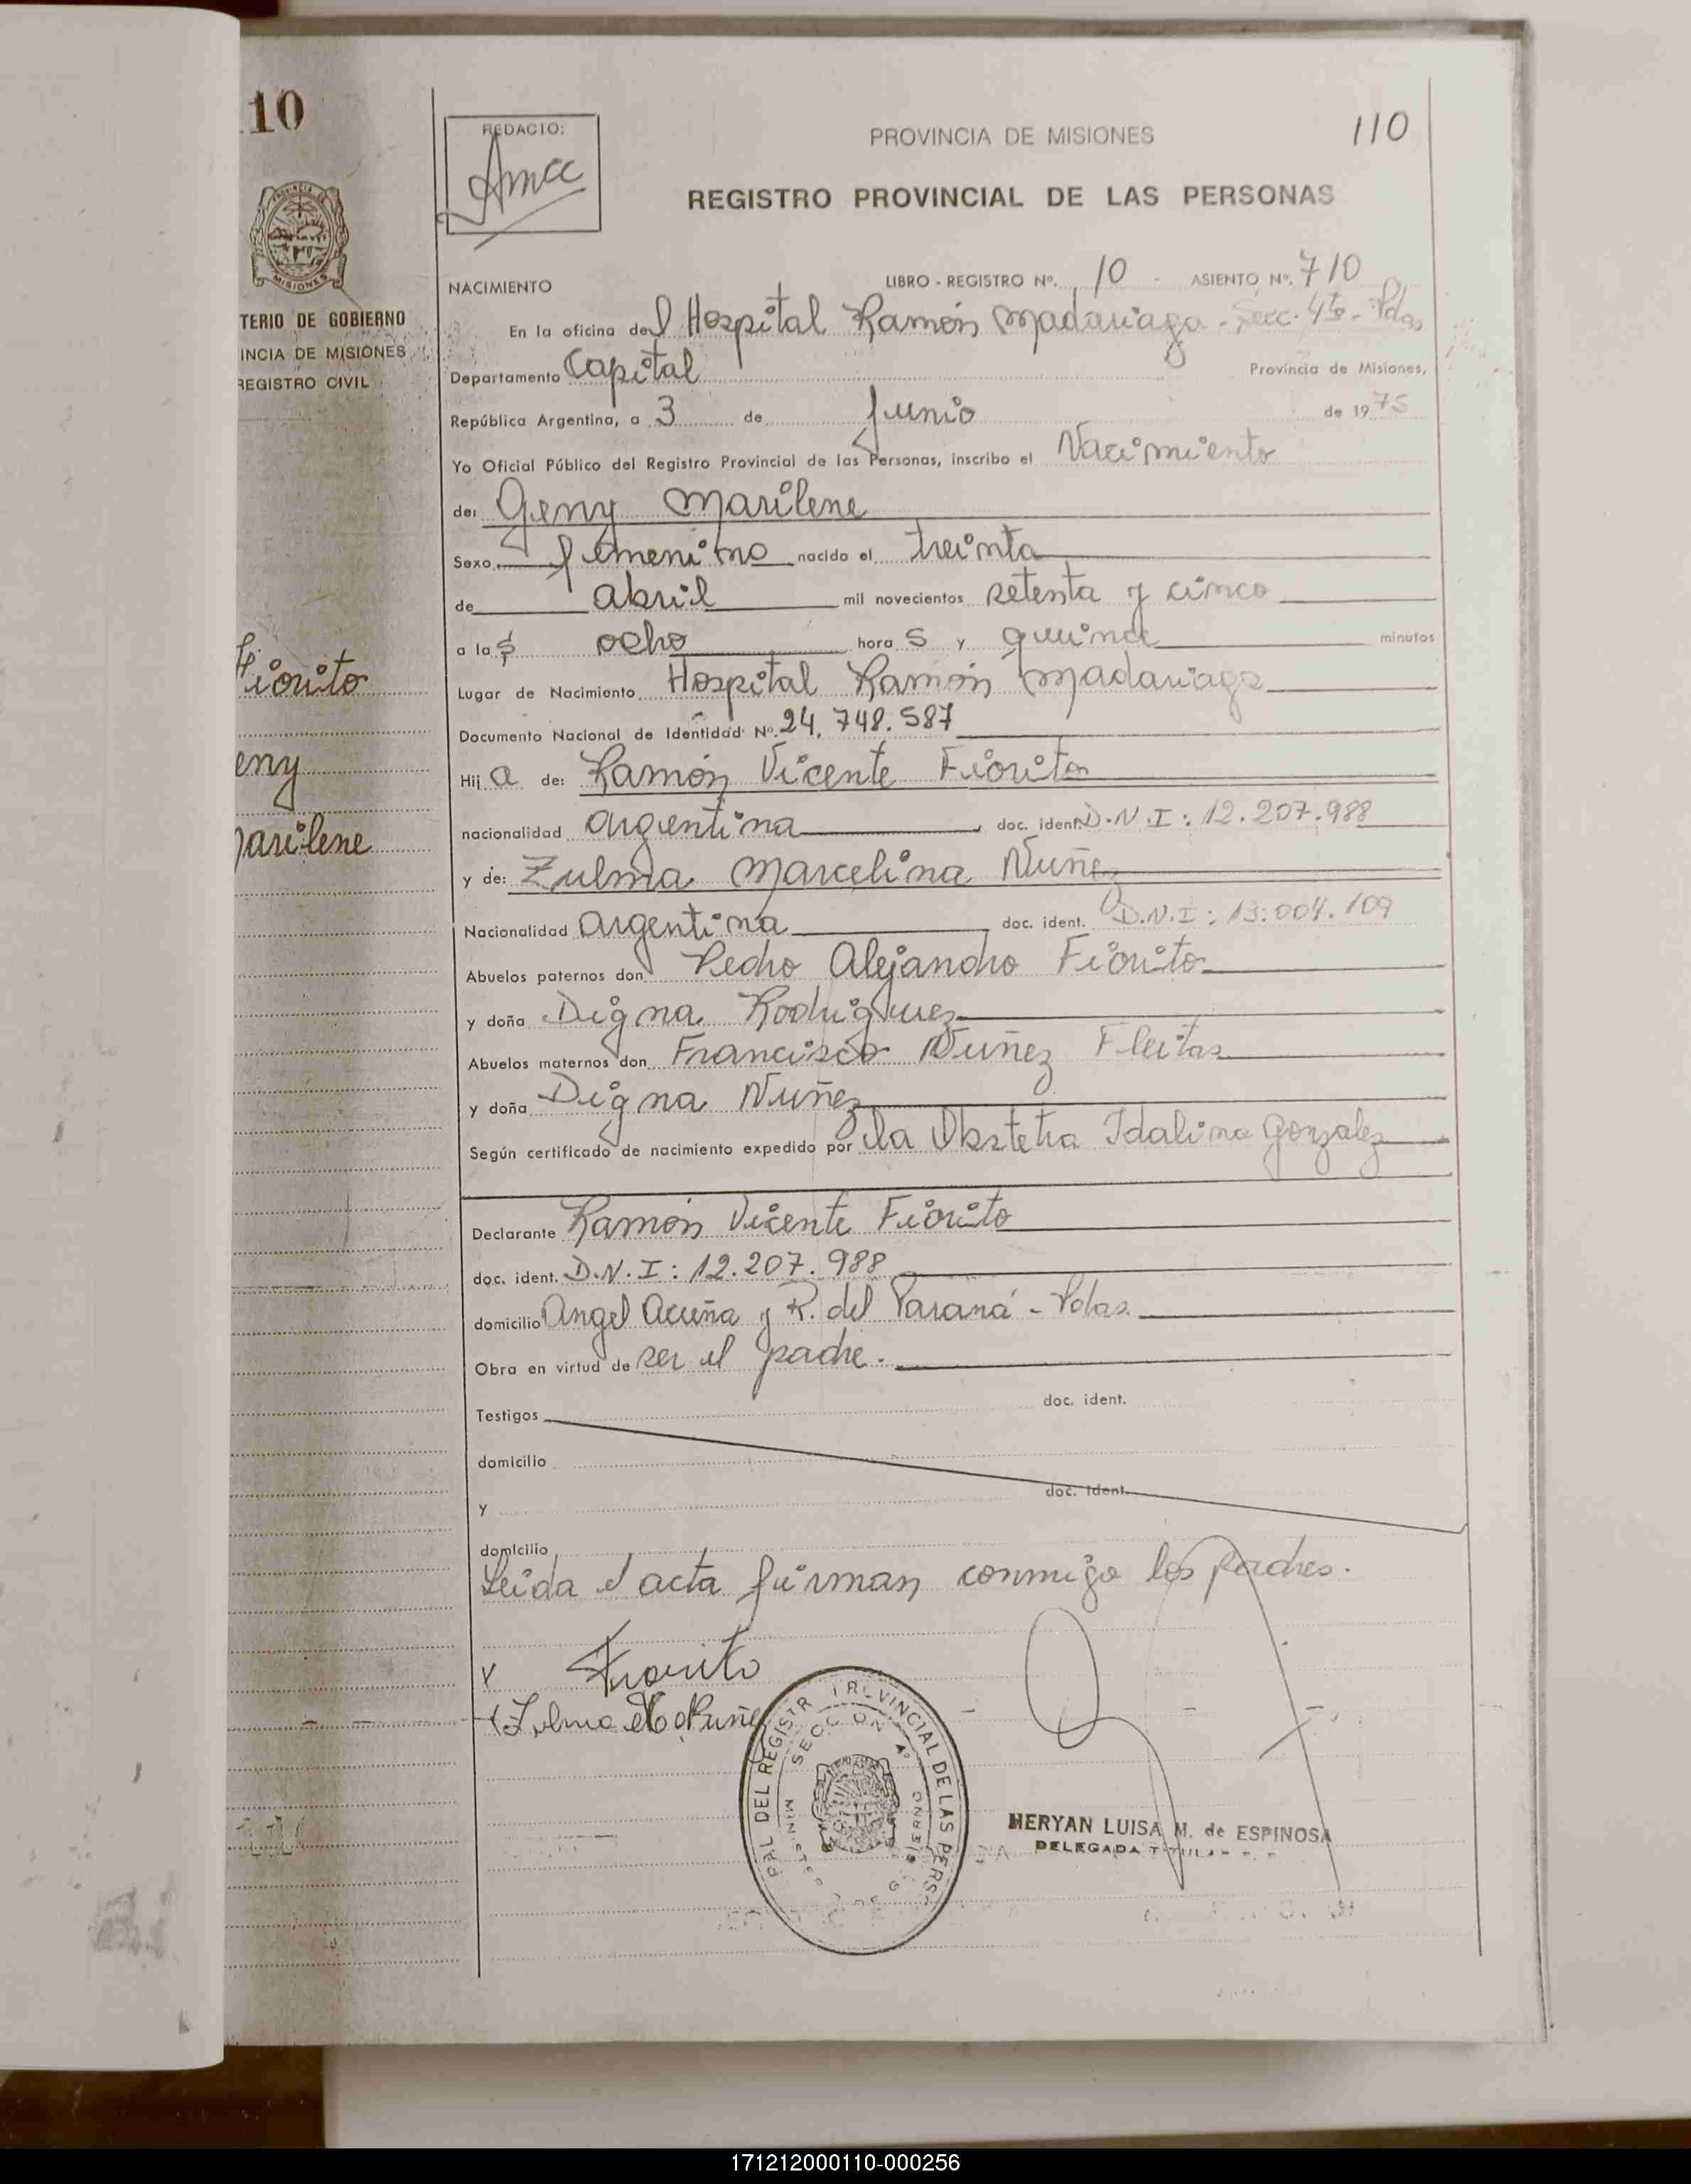 110
TERIO DE GOBIERNO
INCIA DE MISIONES
REGISTRO CIVIL
Fiorito
eny
arilene
REDACTO:
PROVINCIA DE MISIONES
110
REGISTRO PROVINCIAL DE LAS PERSONAS
NACIMIENTO LIBRO - REGISTRO Nº. 10 - ASIENTO Nº. 710
En la oficina del Hospital Ramón Madariaga - Secc. 4ta - Pdas
Departamento Capital Provincia de Misiones,
República Argentina, a 3 de Junio de 1975
Yo Oficial Público del Registro Provincial de las Personas, inscribo el Nacimiento
de: Geny Marilene
Sexo femenino nacido el treinta
de abril mil novecientos setenta y cinco
a las ocho horas y quince minutos
Lugar de Nacimiento Hospital Ramón Madariaga
Documento Nacional de Identidad Nº. 24.748.587
Hija de: Ramón Vicente Fiorito
nacionalidad argentina doc. ident. D.N.I: 12.207.988
y de: Zulma Marcelina Nuñez
Nacionalidad argentina doc. ident. D.N.I: 13.004.109
Abuelos paternos don Pedro Alejandro Fiorito
y doña Digna Rodriguez
Abuelos maternos don Francisco Nuñez Fleitas
y doña Digna Nuñez
Según certificado de nacimiento expedido por la Obstetra Idalina Gonzalez
Declarante Ramón Vicente Fiorito
doc. ident. D.N.I: 12.207.988
domicilio Angel Acuña y R. del Paraná - Pdas.
Obra en virtud de ser el padre.
Testigos doc. ident.
domicilio
y doc. ident.
domicilio
Leida el acta firman conmigo los padres.
Fiorito
Zulma M Nuñez
PAL DEL REGISTR PROVINCIAL DE LAS PERS
SECCION 4º
MERYAN LUISA M. de ESPINOSA
DELEGADA TITULAR
171212000110-000256